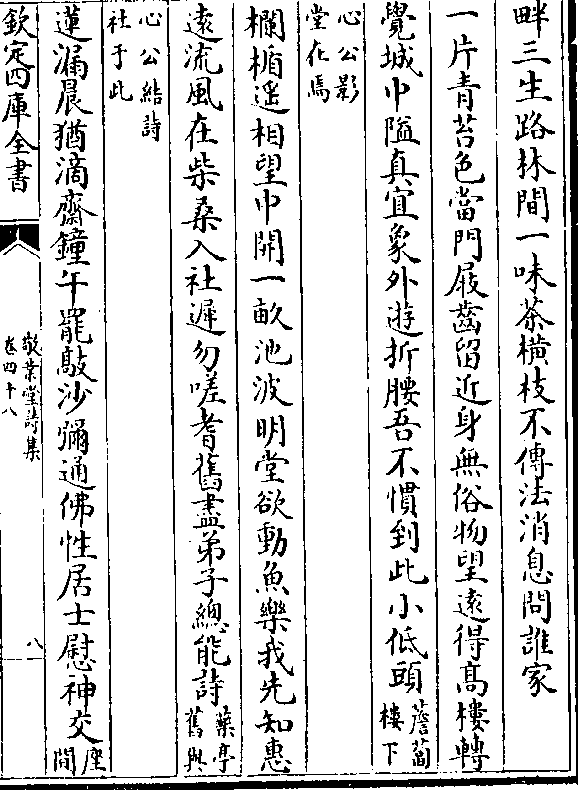 畔三生路林間一味茶横枝不傳法消息問誰家
一片青苔色當門屐齒留近身無俗物望遠得髙樓轉
覺城中隘真宜象外遊折腰吾不慣到此小低頭薝蔔樓下
心公影堂在焉
欄楯遥相望中開一畝池波明堂欲動魚樂我先知惠
遠流風在柴桑入社遲勿嗟耆舊盡弟子總能詩藥亭舊與
心公結詩社于此
蓮漏晨猶滴齋鐘午罷敲沙彌通佛性居士慰神交座間
欽定四庫全書
敬業堂詩集
卷四十八
八